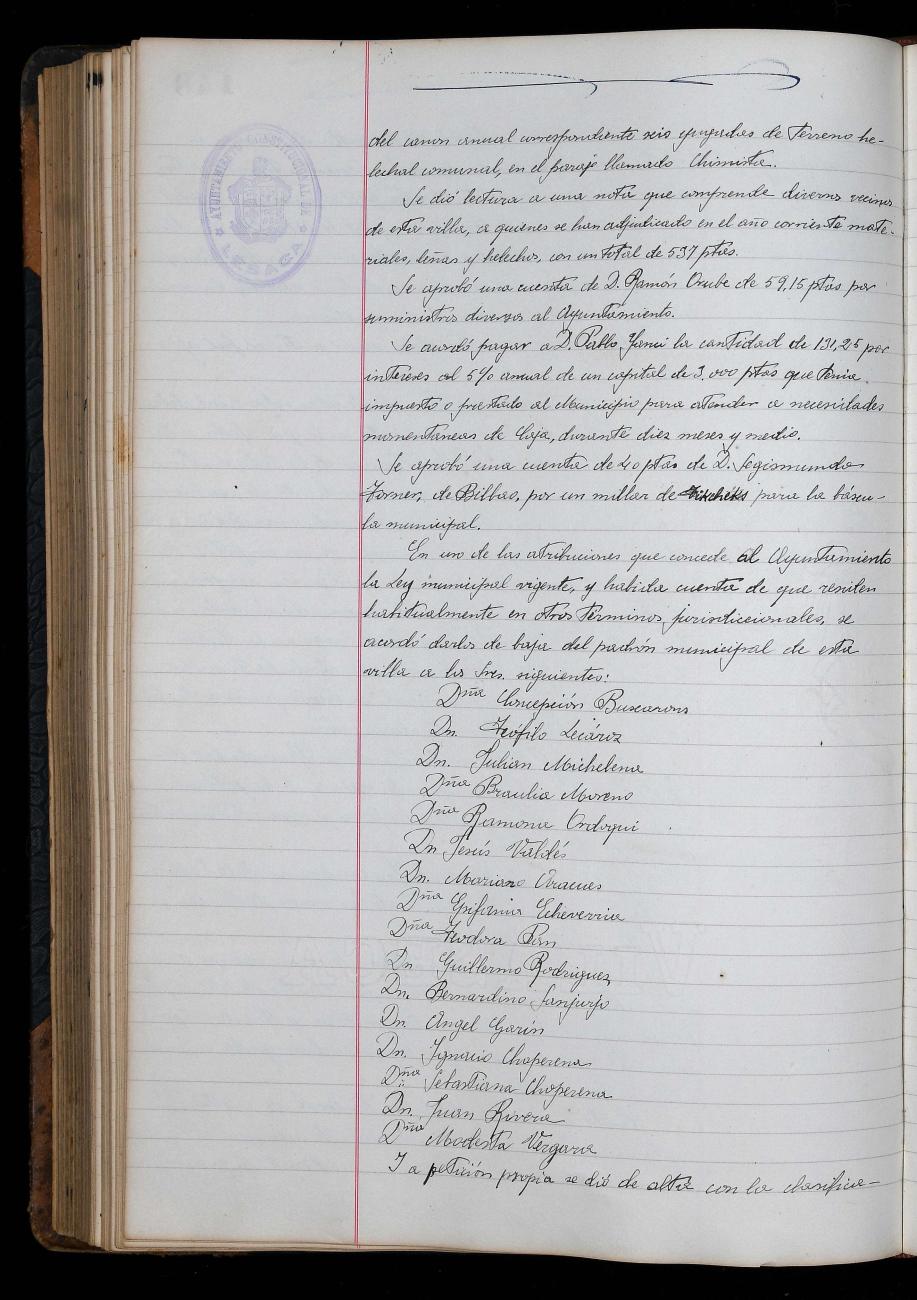 AYUNTAMIENTO CONSTITUCIONAL DE
LESACA
del canon anual correspondiente seis yugadas de terreno he-
lechal comunal, en el paraje llamado Chimista.
Se dió lectura a una nota que comprende diversos vecinos
de esta villa, a quienes se han adjudicado en el año corriente mate-
riales, leñas y helechos, con un total de 537 ptas.
Se aprobó una cuenta de D. Ramón Orube de 59,15 ptas por
suministros diversos al Ayuntamiento.
Se acordó pagar a D. Pablo la cantidad de 131,25 por
intereses al 5% anual de un capital de 3.000 ptas que tenia
impuesto o prestado al Municipio para atender a necesidades
momentaneas de Caja, durante diez meses y medio.
Se aprobó una cuenta de 40 ptas de D. Segismundo
de Bilbao, por un millar de para la báscu-
la municipal.
En uso de las atribuciones que concede al Ayuntamiento
la Ley municipal vigente, y habida cuenta de que residen
habitualmente en otros términos jurisdiccionales, se
acordó darlos de baja del padrón municipal de esta
villa a los Sres. siguientes:
Dña Concepción Buscarons
Dn. Teófilo Leiároz
Dn. Julian Michelena
Dña Braulia Moreno
Dña Ramona Ordoqui
Dn Jesús Valdés
Dn. Mariano
Dña Epifania Echeverria
Dña Teodora Pan
Dn Guillermo Rodriguez
Dn. Bernardino Sanjurjo
Dn. Angel Garín
Dn. Ignacio Choperena
Dña Sebastiana Choperena
Dn. Juan Rivera
Dña Modesta Vergara
I a petición propia se dió de alta con la clasifica-